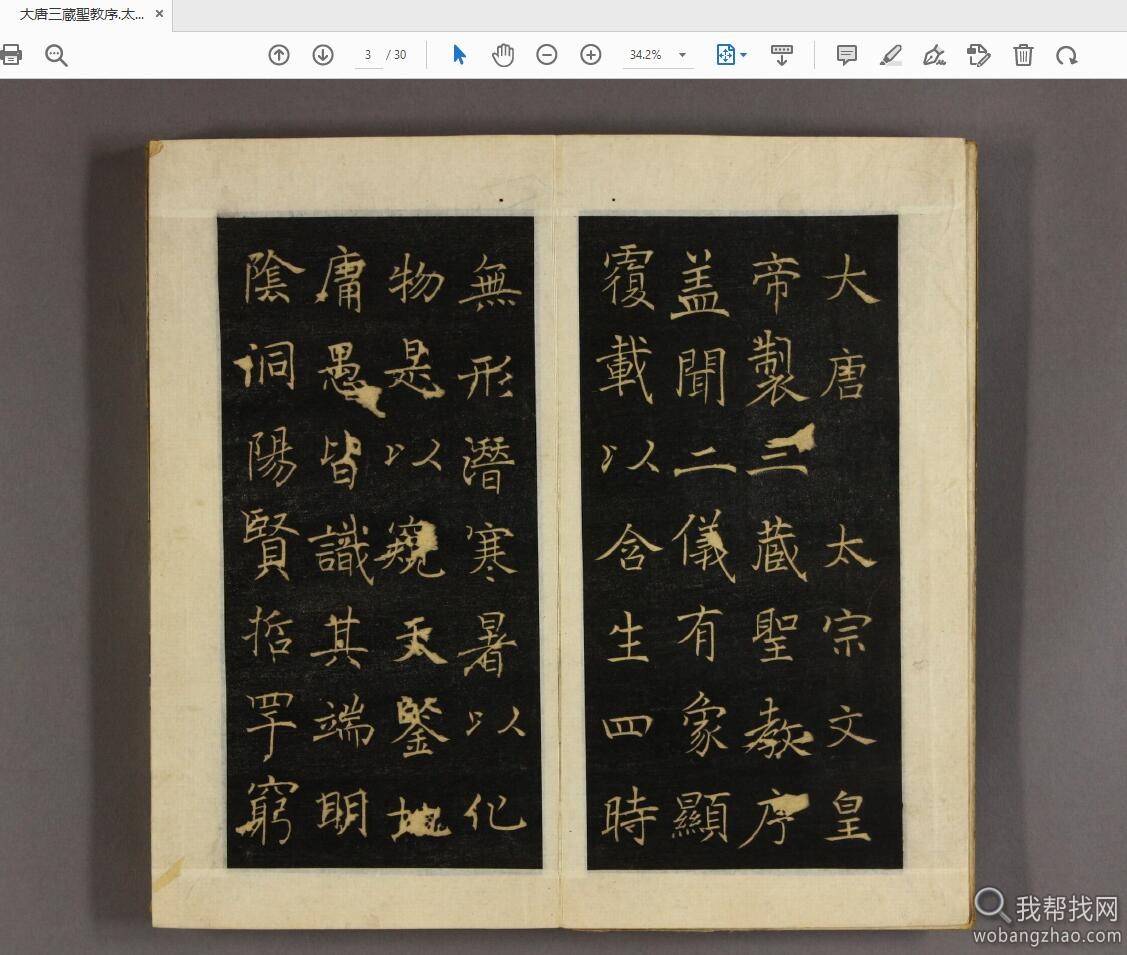 大唐三蔵聖教序.太...
3 / 30
34.2%
大唐 太宗文皇
帝製三蔵聖教序
盖聞二儀有象顯
覆載以含生四時
無形潛寒暑以化
物是以窺天鑒地
庸愚皆識其端明
陰洞陽賢哲罕窮
我帮找网
wobangzhao.com